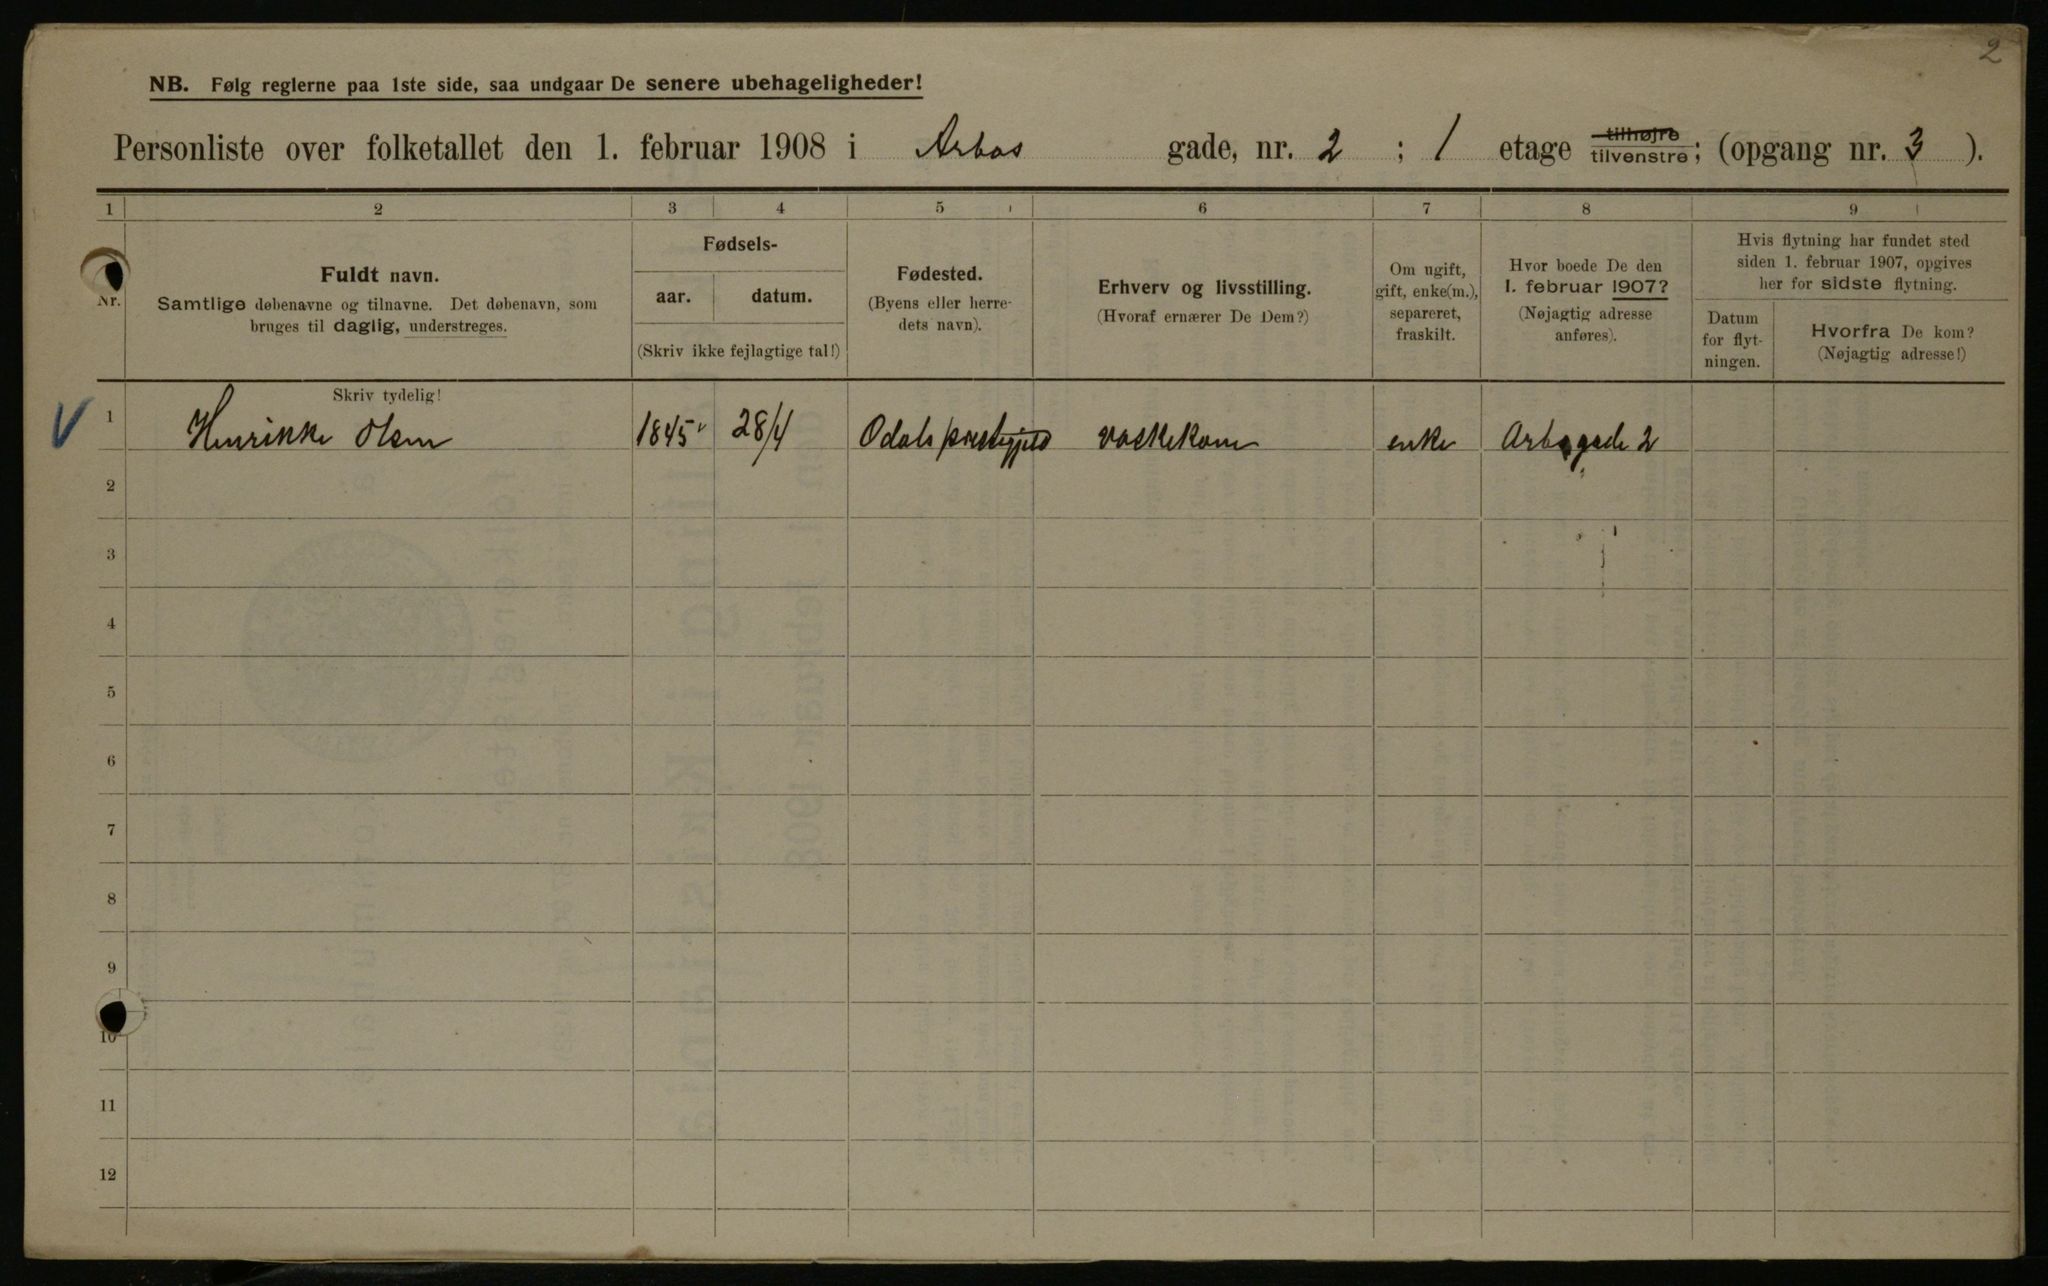 2
NB. Følg reglerne paa 1ste side, saa undgaar De senere ubehageligheder!
Personliste over folketallet den 1. februar 1908 i Arbos gade, nr. 2 ; 1 etage tilhøjre tilvenstre; (opgang nr. 3 ).
1 2 3 4 5 6 7 8 9
Nr.
Fuldt navn.
Samtlige døbenavne og tilnavne. Det døbenavn, som
bruges til daglig, understreges.
Fødsels-
aar. datum.
(Skriv ikke fejlagtige tal!)
Fødested.
(Byens eller herre-
dets navn).
Erhverv og livsstilling.
(Hvoraf ernærer De Dem?)
Om ugift,
gift, enke(m.),
separeret,
fraskilt.
Hvor boede De den
1. februar 1907?
(Nøjagtig adresse
anføres).
Hvis flytning har fundet sted
siden 1. februar 1907, opgives
her for sidste flytning.
Datum
for flyt-
ningen.
Hvorfra De kom?
(Nøjagtig adresse!)
Skriv tydelig!
V 1 Henrikke Olsen 1845 28/4 Odals prestegjeld vaskekone enke Arbogade 2
2
3
4
5
6
7
8
9
10
11
12